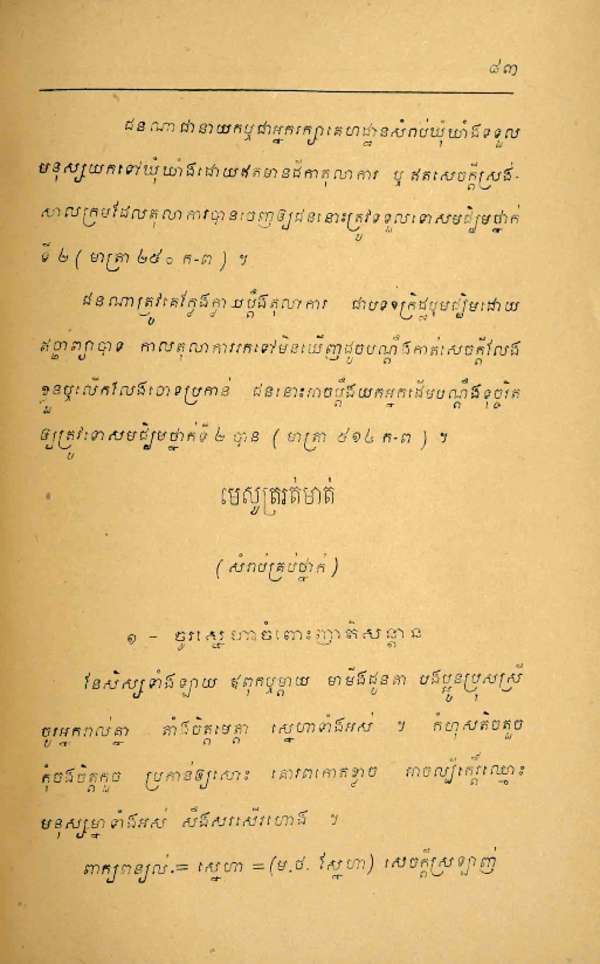 ៨៣
ជនណាជានាយកឬជាអ្នករក្សាគេហដ្ឋានសំរាប់ឃុំឃាំងទទួល
មនុស្សយកទៅឃុំឃាំងដោយឥតមានដីកាតុលាការ ឬ ឥតសេចក្ដីស្រង់-
សាលក្រមដែលតុលាការបានចេញឲ្យជននោះត្រូវទទួលទោសមជ្ឈិមថ្នាក់
ទី ២ ( មាត្រា ២៥០ ក-ព ) ។
ជនណាត្រូវគេក្លែងក្លាយប្ដឹងតុលាការ ជាបទឧក្រិដ្ឋឬមជ្ឈិមដោយ
ឥច្ឆាព្យាបាទ កាលតុលាការរកទៅមិនឃើញដូចបណ្ដឹងកាត់សេចក្ដីលែង
ខ្លួនឬលើកលែងចោទប្រកាន់ ជននោះអាចប្ដឹងយកអ្នកដើមបណ្ដឹងទុច្ចរិត
ឲ្យត្រូវទោសមជ្ឈិមថ្នាក់ទី ២ បាន ( មាត្រា ៥១៤ ក-ព ) ។
មេសូត្ររត់មាត់
( សំរាប់គ្រប់ថ្នាក់ )
១ - ចូរស្នេហាចំពោះញាតិសន្ដាន
នៃសិស្សទាំងឡាយ ឪពុកឬម្ដាយ មាមីងជូនតា បងប្អូនប្រុសស្រី
ចូរអ្នករាល់គ្នា តាំងចិត្តមេត្តា ស្នេហាទាំងអស់ ។ កំហុសតិចតួច
កុំចងចិត្តកួច ប្រកាន់ឲ្យសោះ គោរពកោតខ្លាច អាចល្បីកេរ្តិ៍ឈ្មោះ
មនុស្សម្នាទាំងអស់ សឹងសរសើរហោង ។
ពាក្យពន្យល់.= ស្នេហា =(ម.ថ. ស្នែហា) សេចក្ដីស្រឡាញ់